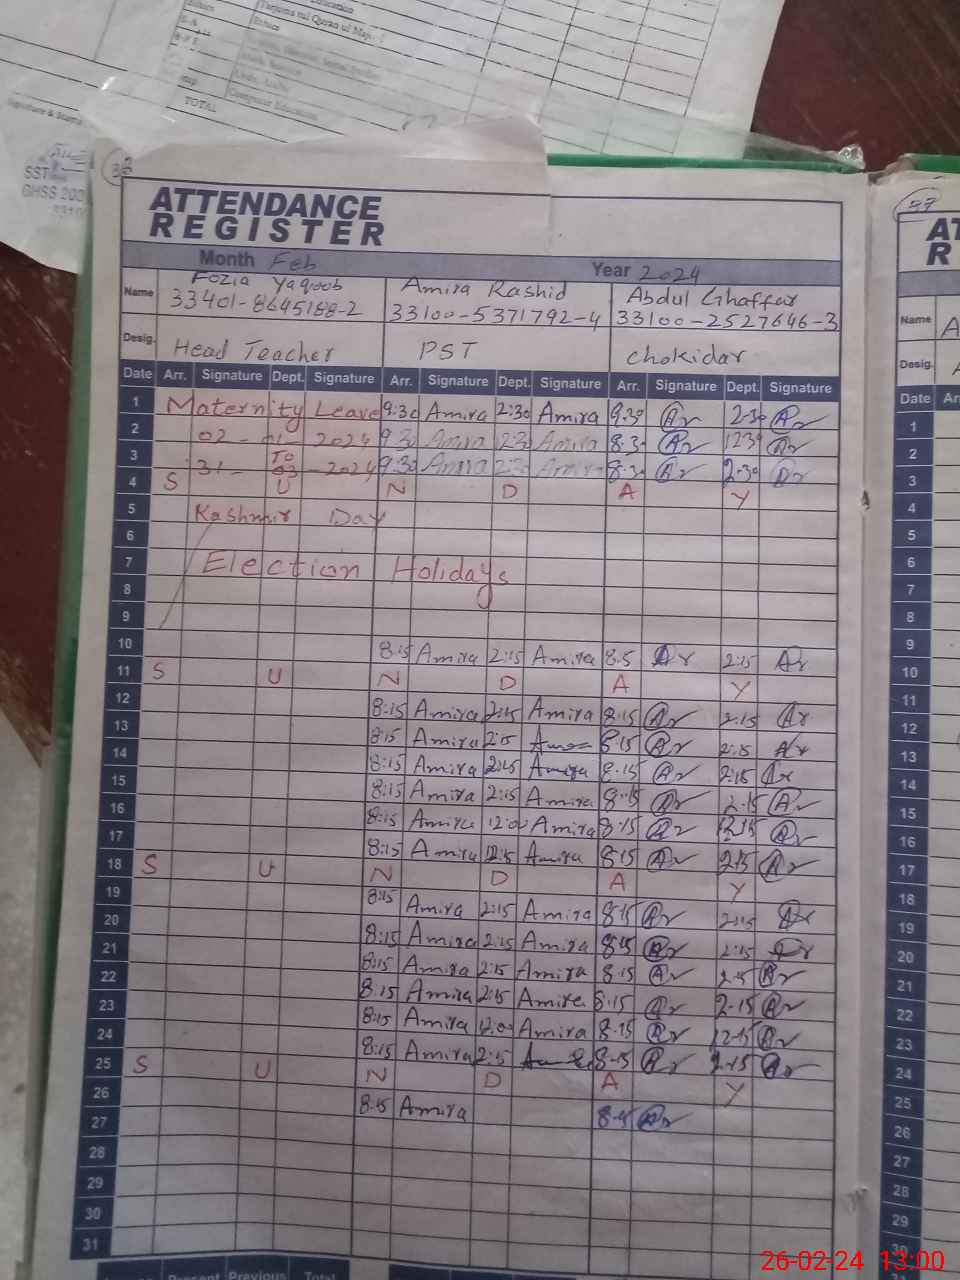 Education
Tarjuma tul Quran ul Maj
Ethics
Science
Computer Education
TOTAL
Signature & Stamp
SST
GHSS 200
33
ATTENDANCE
REGISTER
Month Feb Year 2024
Name Fozia Yaqoob Amira Rashid Abdul Ghaffar
33401-8645188-2 33100-5371792-4 33100-2527646-3
Desig. Head Teacher PST Chokidar
Date Arr. Signature Dept. Signature Arr. Signature Dept. Signature Arr. Signature Dept. Signature
1 Maternity Leave 9:30 Amira 2:30 Amira 9.30 Ar 2-30 Ar
2 02 - 01 - 2024 9:30 Amira 12:30 Amira 8.30 Ar 1230 Ar
3 31 - TO 03 - 2024 9:30 Amira 2:30 Amira 8.30 Ar 2-30 Ar
4 S U N D A Y
5 Kashmir Day
6
7 Election Holidays
8
9
10 8:15 Amira 2:15 Amira 8.5 Ar 2:15 Ar
11 S U N D A Y
12 8:15 Amira 2:15 Amira 8:15 Ar 2:15 Ar
13 8:15 Amira 2:15 8:15 Ar 2:15 Ar
14 8:15 Amira 2:15 Amira 8.15 Ar 2:15 Ar
15 8:15 Amira 2:15 Amira 8:15 Ar 2.15 Ar
16 8:15 Amira 12:00 Amira 8:15 Ar 12:15 Ar
17 8:15 Amira 12:15 Amira 8:15 Ar 2:15 Ar
18 S U N D A Y
19 8:15 Amira 2:15 Amira 8:15 Ar 2:15 Ar
20 8:15 Amira 2:15 Amira 8:15 Ar 2:15 Ar
21 8:15 Amira 2:15 Amira 8.15 Ar 2.15 Ar
22 8:15 Amira 2:15 Amira 8.15 Ar 2-15 Ar
23 8:15 Amira 12:00 Amira 8-15 Ar 12-15 Ar
24 8:15 Amira 2:15 8-15 Ar 2-15 Ar
25 S U N D A Y
26 8:15 Amira Ar
27
28
29
30
31
Present Previous Total
37
AT
R
Name A
Desig.
Date Arr
1
2
3
4
5
6
7
8
9
10
11
12
13
14
15
16
17
18
19
20
21
22
23
24
25
26
27
28
29
30
26-02-24 13:00